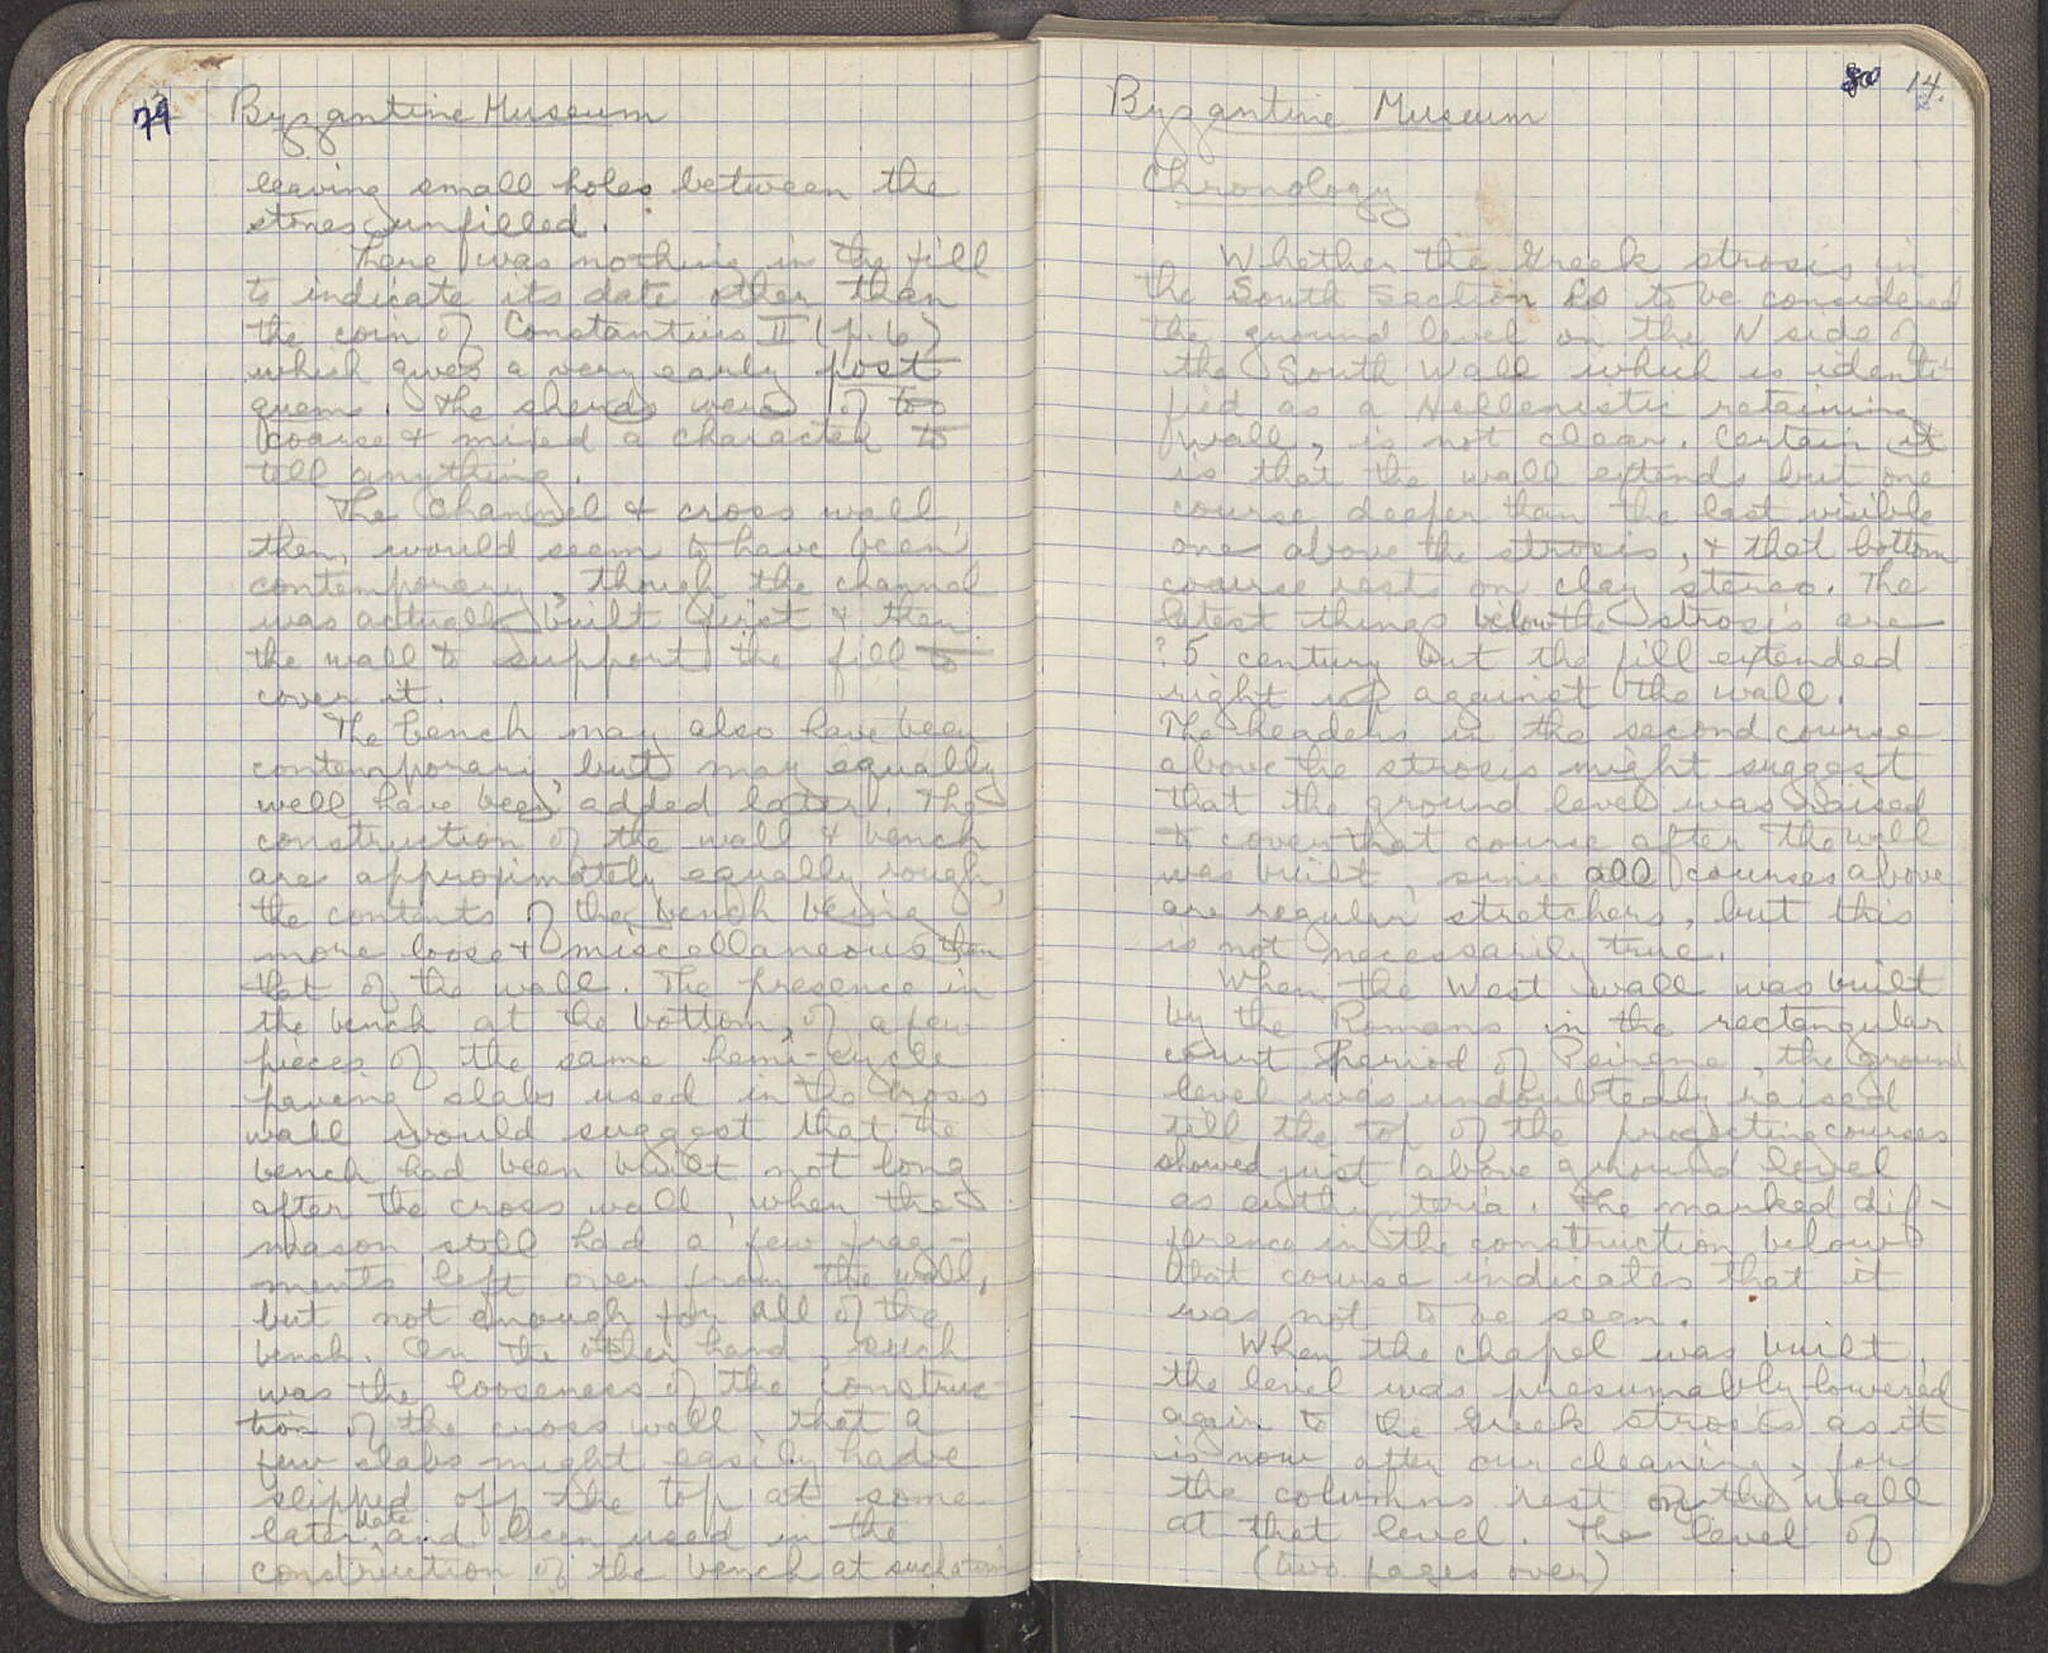 79
Byzantine Museum
leaving small holes between the
stones unfilled.
There was nothing in the fill
to indicate its date other than
the coin of Constantius II (p. 6)
which gives a very early post
quem. The sherds were of too
coarse & mixed a character to
tell anything.
The channel & cross wall,
then, would seem to have been
contemporary, though the channel
was actually built first & then
the wall to support the fill to
cover it.
The bench may also have been
contemporary, but may equally
well have been added later. The
construction of the wall & bench
are approximately equally rough,
the contents of the bench being
more loose & miscellaneous than
that of the wall. The presence in
the bench at the bottom, of a few
pieces of the same hemi-cycle
paving slabs used in the cross
wall would suggest that the
bench had been built not long
after the cross wall, when the
mason still had a few frag-
ments left over from the wall,
but not enough for all of the
bench. On the other hand, such
was the looseness of the construc-
tion of the cross wall, that a
few slabs might easily have
slipped off the top at some
later date and been used in the
construction of the bench at such a time
80 14.
Byzantine Museum
Chronology
Whether the Greek strosis in
the South section is to be considered
the ground level on the N side of
the South Wall which is identi-
fied as a Hellenistic retaining
wall, is not clear. Certain it
is that the wall extends but one
course deeper than the last visible
one above the strosis, & that bottom
course rests on clay stereo. The
latest things below the strosis are
? 5 century but the fill extended
right up against the wall.
The headers in the second course
above the strosis might suggest
that the ground level was raised
to cover that course after the wall
was built, since all courses above
are regular stretchers, but this
is not necessarily true.
When the West wall was built
by the Romans in the rectangular
court period of Peirene, the ground
level was undoubtedly raised
till the top of the projecting courses
showed just above ground level
as euthynteria. The marked dif-
ference in the construction below
that course indicates that it
was not to be seen.
When the chapel was built,
the level was presumably lowered
again to the Greek strosis as it
is now after our cleaning, for
the columns rest on the wall
at that level. The level of
(two pages over)